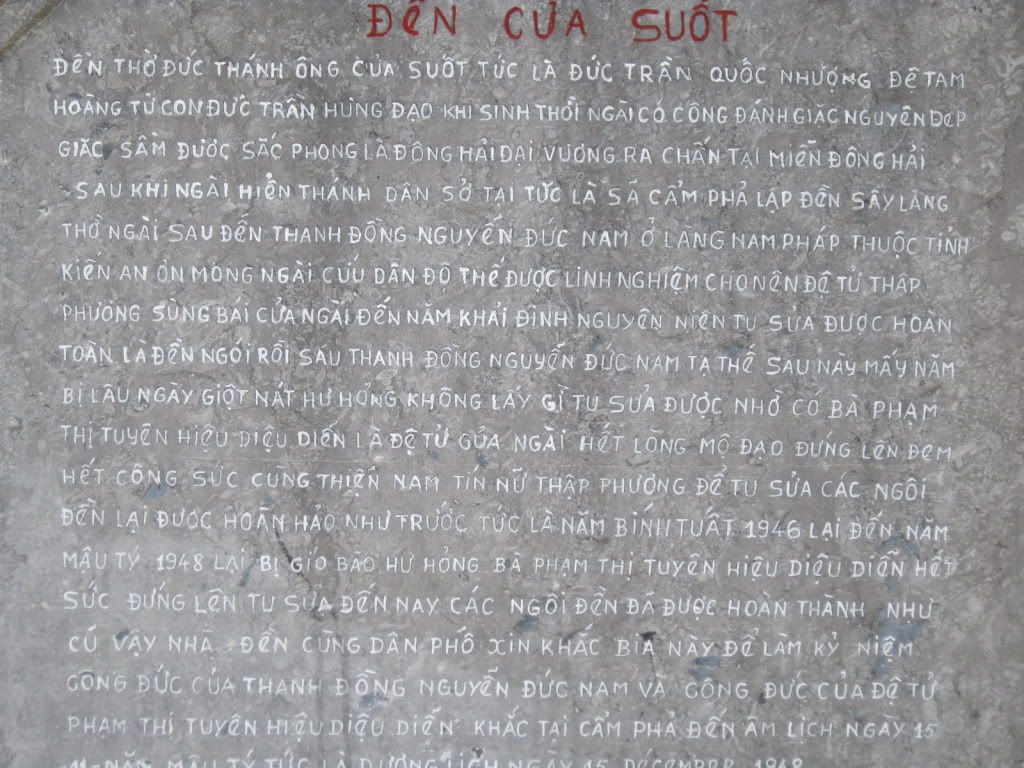 ĐỀN CỬA SUỐT
ĐỀN THỜ ĐỨC THÁNH ÔNG CỬA SUỐT TỨC LÀ ĐỨC TRẦN QUỐC NHƯỢNG ĐỆ TAM
HOÀNG TỬ CON ĐỨC TRẦN HƯNG ĐẠO KHI SINH THỜI NGÀI CÓ CÔNG ĐÁNH GIẶC NGUYÊN DẸP
GIẶC SẦM ĐƯỢC SẮC PHONG LÀ ĐÔNG HẢI ĐẠI VƯƠNG RA CHẤN TẠI MIỀN ĐÔNG HẢI
SAU KHI NGÀI HIỂN THÁNH DÂN SỞ TẠI TỨC LÀ SÃ CẨM PHẢ LẬP ĐỀN SÂY LĂNG
THỜ NGÀI SAU ĐẾN THANH ĐỒNG NGUYỄN ĐỨC NAM Ở LÀNG NAM PHÁP THUỘC TỈNH
KIẾN AN ƠN MÓNG NGÀI CỨU DÂN ĐỘ THẾ ĐƯỢC LINH NGHIỆM CHO NÊN ĐỆ TỬ THẬP
PHƯƠNG SÙNG BÁI CỬA NGÀI ĐẾN NĂM KHẢI ĐỊNH NGUYÊN NIÊN TU SỬA ĐƯỢC HOÀN
TOÀN LÀ ĐỀN NGÓI RỒI SAU THANH ĐỒNG NGUYỄN ĐỨC NAM TẠ THẾ SAU NÀY MẤY NĂM
BỊ LÂU NGÀY GIỘT NÁT HƯ HỎNG KHÔNG LẤY GÌ TU SỬA ĐƯỢC NHỜ CÓ BÀ PHẠM
THỊ TUYÊN HIỆU DIỆU DIỄN LÀ ĐỆ TỬ CỦA NGÀI HẾT LÒNG MỘ ĐẠO ĐỨNG LÊN ĐEM
HẾT CÔNG SỨC CÙNG THIỆN NAM TÍN NỮ THẬP PHƯƠNG ĐỂ TU SỬA CÁC NGÔI
ĐỀN LẠI ĐƯỢC HOÀN HẢO NHƯ TRƯỚC TỨC LÀ NĂM BÍNH TUẤT 1946 LẠI ĐẾN NĂM
MẬU TÝ 1948 LẠI BỊ GIÓ BÃO HƯ HỎNG BÀ PHẠM THỊ TUYÊN HIỆU DIỆU DIỄN HẾT
SỨC ĐỨNG LÊN TU SỬA ĐẾN NAY CÁC NGÔI ĐỀN ĐÃ ĐƯỢC HOÀN THÀNH NHƯ
CŨ VẬY NHÀ ĐỀN CÙNG DÂN PHỐ XIN KHẮC BIA NÀY ĐỂ LÀM KỶ NIỆM
CÔNG ĐỨC CỦA THANH ĐỒNG NGUYỄN ĐỨC NAM VÀ CÔNG ĐỨC CỦA ĐỆ TỬ
PHẠM THỊ TUYÊN HIỆU DIỆU DIỄN KHẮC TẠI CẨM PHẢ ĐẾN ÂM LỊCH NGÀY 15
11-NĂM MẬU TÝ TỨC LÀ DƯƠNG LỊCH NGÀY 15 DÉCEMBRE 1948